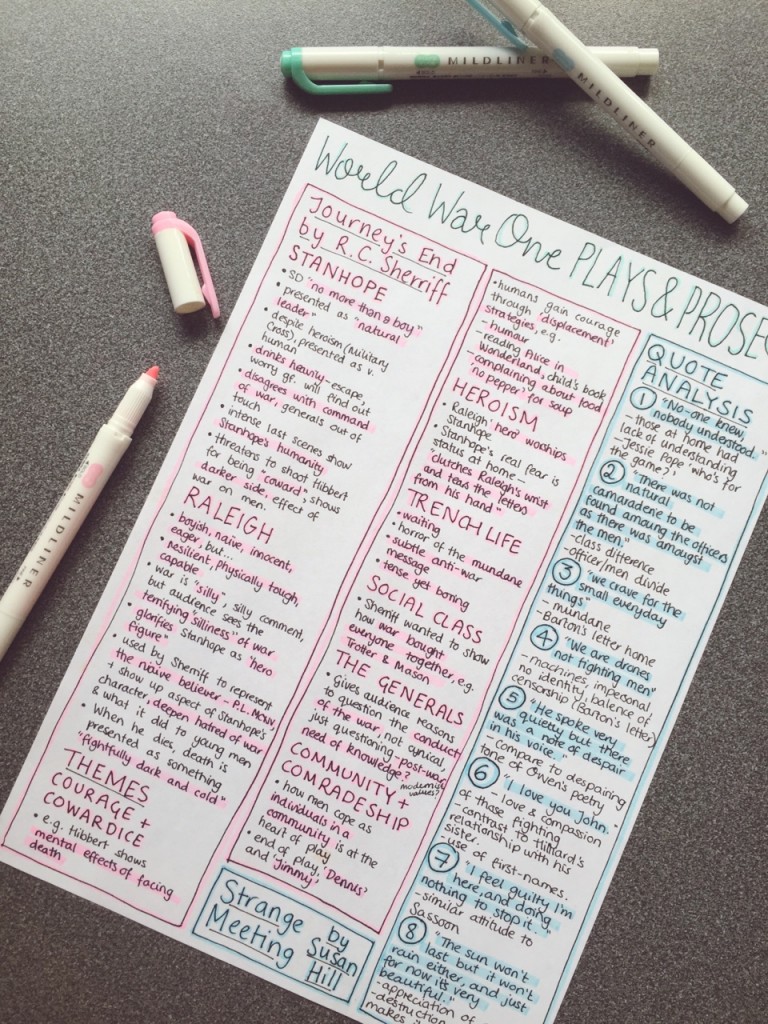 MILDLINER
MILDLINER
MILDLINER
World War One PLAYS & PROSE
Journey's End
by R.C. Sherriff
STANHOPE
• SD "no more than a boy"
• presented as "natural
leader"
• despite heroism (Military
Cross), presented as v.
human
• drinks heavily - escape,
worry gf. will find out
• disagrees with command
of war, generals out of
touch
• intense last scenes show
Stanhope's humanity
• threatens to shoot Hibbert
for being "coward", shows
darker side, effect of
war on men.
RALEIGH
• boyish, naive, innocent,
eager, but...
• resilient, physically tough,
capable
• war is "silly", silly comment,
but audience sees the
terrifying silliness of war
• glorifies Stanhope as "hero
figure"
• used by Sherriff to represent
the naive believer -
+ show up aspect of Stanhope's
character, deepen hatred of war
& what it did to young men
• When he dies, death is
presented as something
"frightfully dark and cold"
THEMES
COURAGE +
COWARDICE
• e.g. Hibbert shows
mental effects of facing
death
• humans gain courage
through 'displacement'
strategies, e.g.
- humour
- reading Alice in
Wonderland, child's book
- complaining about food
'no pepper' for soup
HEROISM
• Raleigh 'hero' worships
Stanhope
• Stanhope's real fear is
status at home -
"clutches Raleigh's wrist
and tears the letters
from his hand"
TRENCH LIFE
• waiting
• horror of the mundane
• subtle anti-war
message
• tense yet boring
SOCIAL CLASS
• Sherriff wanted to show
how war bought
everyone together, e.g.
Trotter & Mason
THE GENERALS
• Gives audience reasons
to question the conduct
of the war, not cynical,
just questioning - post-war
need of knowledge?
modernist
values?
COMMUNITY +
COMRADESHIP
• how men cope as
individuals in a
community is at the
heart of play
• end of play, 'Dennis'
and 'Jimmy'
Strange
Meeting
by
Susan
Hill
QUOTE
ANALYSIS
1 "No-one knew,
nobody understood."
- those at home had
lack of understanding
- Jessie Pope 'who's for
the game?'
2 "There was not
natural
camaraderie to be
found among the officers
as there was amongst
the men."
- class difference
- officer/men divide
3 "we crave for the
small everyday
things"
- mundane
- Barton's letter home
4 "We are drones
not fighting men"
- machines, impersonal,
no identity, balence of
censorship (Barton's letter)
5 "He spoke very
quietly but there
was a note of despair
in his voice."
- compare to despairing
tone of Owen's poetry
6 "I love you John."
- love & compassion
of those fighting
- contrast to Hilliard's
relationship with his
sister.
- use of first-names.
7 "I feel guilty I'm
here, and doing
nothing to stop it."
- similar attitude to
Sassoon
8 "The sun won't
last but it won't
rain either, and just
for now its very
beautiful."
- appreciation of
- destruction
makes